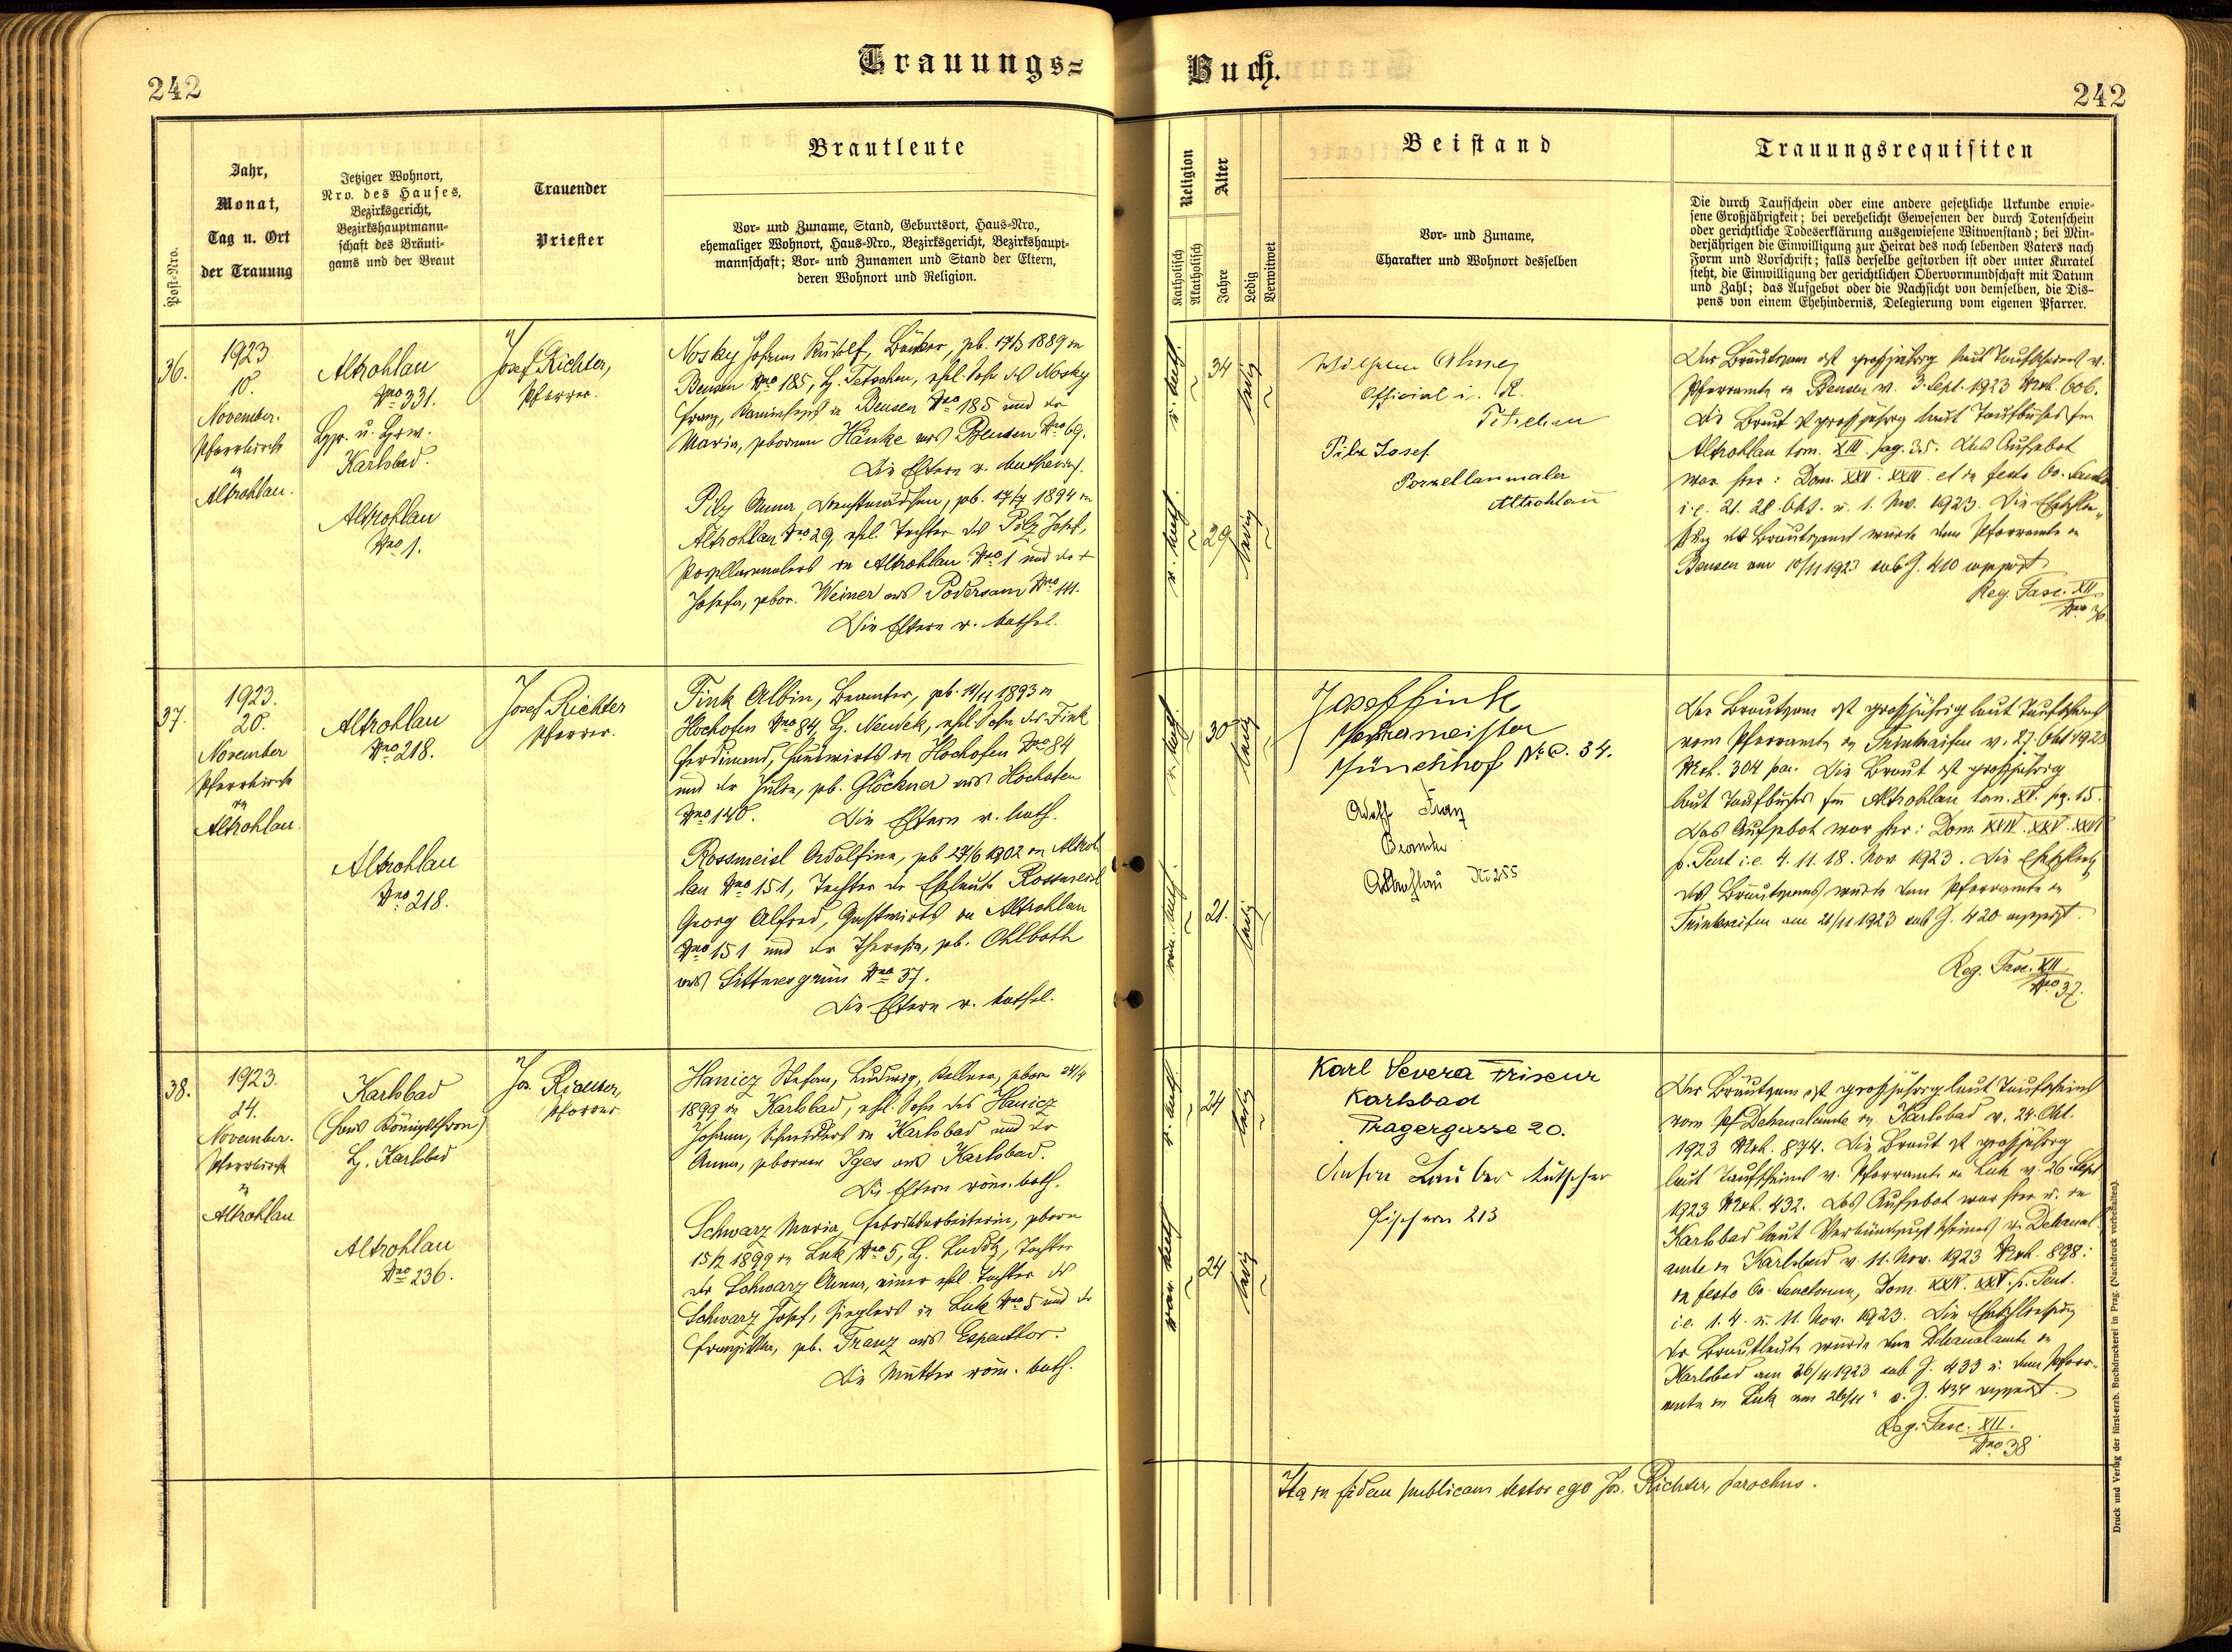 242
Trauungs=
Buch.
242
Post-Nro.
Jahr,
Monat,
Tag u. Ort
der Trauung
Jetziger Wohnort,
Nro. des Hauses,
Bezirksgericht,
Bezirkshauptmann-
schaft des Bräuti-
gams und der Braut
Trauender
Priester
Brautleute
Vor- und Zuname, Stand, Geburtsort, Haus-Nro.,
ehemaliger Wohnort, Haus-Nro., Bezirksgericht, Bezirkshaupt-
mannschaft; Vor- und Zunamen und Stand der Eltern,
deren Wohnort und Religion.
Religion
Katholisch
Akatholisch
Alter
Jahre
Ledig
Verwitwet
Beistand
Vor- und Zuname,
Charakter und Wohnort desselben
Trauungsrequisiten
Die durch Taufschein oder eine andere gesetzliche Urkunde erwie-
sene Großjährigkeit; bei verehelicht Gewesenen der durch Totenschein
oder gerichtliche Todeserklärung ausgewiesene Witwenstand; bei Min-
derjährigen die Einwilligung zur Heirat des noch lebenden Vaters nach
Form und Vorschrift; falls derselbe gestorben ist oder unter Kuratel
steht, die Einwilligung der gerichtlichen Obervormundschaft mit Datum
und Zahl; das Aufgebot oder die Nachsicht von demselben, die Dis-
pens von einem Ehehindernis, Delegierung vom eigenen Pfarrer.
36.
1923
10.
November.
Pfarrkirche
in
Altrohlau.
Altrohlau
Nro 331.
Karlsbad.
Altrohlau
Nro 1.
Josef Richter,
Pfarrer.
Nosky Johann Rudolf, Bäcker, geb. 17/3 1889 in
Bensen Nro 185, Bz. Tetschen, ehel. Sohn des Nosky
Franz, in Bensen Nro 185 und der
Maria, geborenen Hanke aus Bensen Nro 69.
Die Eltern r. katholisch.
Pilz Anna, Dienstmädchen, geb. 1894 in
Altrohlau Nro 29, ehel. Tochter des Pilz Josef,
Porzellanmalers in Altrohlau Nro 1 und der +
Josefa, gebor. Weiner aus Podersam Nro 141.
Die Eltern r. kathol.
r. kath.
34
ledig
r. kath.
29
ledig
Wilhelm
Official i. R.
Tetschen
Pilz Josef
Porzellanmaler
Altrohlau
Der Bräutigam ist großjährig laut Taufscheines v.
Pfarramte in Bensen v. 3. Sept. 1923 Mrk. 606.
Die Braut ist großjährig laut Taufbuches in
Altrohlau tom. XIII. pag. 35. Das Aufgebot
war hier: Dom. XXII. XXIII et in festo Oo. Sanct.
i.e. 21. 28. Okt. u. 1. Nov. 1923. Die Eheschlie-
ßung des Bräutigams wurde dem Pfarramte in
Bensen am 10/11 1923 sub Z. 410 angezeigt.
Reg. Fasc. XII
Nro 36.
37.
1923.
20.
November
Pfarrkirche
in
Altrohlau.
Altrohlau
Nro 218.
Altrohlau
Nro 218.
Josef Richter
Pfarrer.
Fink Albin, Beamter, geb. 14/11 1893 in
Hochofen Nro 84, Bz. Neudek, ehel. Sohn des Fink
Ferdinand, in Hochofen Nro 84
und der Julie, geb. Glöckner aus Hochofen
Nro 140. Die Eltern r. kath.
Rossmeisl Adolfine, geb 27/6 1902 in Altroh-
lau Nro 151, Tochter der Eheleute Rossmeisl
Georg Alfred, Gastwirts in Altrohlau
Nro 151 und der Theresia, geb. Ohlboth
aus Sittmesgrün Nro 37.
Die Eltern r. kathol.
r. kath.
30
ledig
röm. kath.
21.
ledig
Josef Fink
Münchhof No C. 34.
Adolf Franz
Beamter
Altrohlau No 255
Der Bräutigam ist großjährig laut Taufscheines
vom Pfarramte in Trinksaifen v. 27. Okt 1923
Mrk. 304 par. Die Braut ist großjährig
laut Taufbuches in Altrohlau tom. XV. pg. 15.
Das Aufgebot war hier: Dom. XXIV. XXV. XXVI
p. Pent i.e. 4. 11. 18. Nov. 1923. Die Eheschließg
des Bräutigams wurde dem Pfarramte in
Trinksaifen am 21/11 1923 sub Z. 420 angezeigt.
Reg. Fasc. XII.
Nro 37.
38.
1923.
24.
November.
Pfarrkirche
in
Altrohlau
Karlsbad
(Haus Königsthron)
Bz. Karlsbad
Altrohlau
Nro 236.
Jos. Richter,
Pfarrer.
Hanicz Stefan, Ludwig, Kellner, geboren 24/4
1899 in Karlsbad, ehel. Sohn des Hanicz
Johann, Schneiders in Karlsbad und der
Anna, geborenen Iges aus Karlsbad.
Die Eltern röm. kath.
Schwarz Maria, Fabriksarbeiterin, geboren
15/2 1899 in Luk Nro 5, Bz. Luditz, Tochter
der Schwarz Anna, einer ehel. Tochter des
Schwarz Josef, Zieglers in Luk Nro 5 und der
Franziska, geb. Franz aus Espenthor.
Die Mutter röm. kath.
r. kath.
24
ledig
röm. kath
24
ledig
Karl Severa Friseur
Karlsbad
Pragergasse 20.
Anton Lauber Kutscher
Fischern 213
Der Bräutigam ist großjährig laut Taufscheines
vom Pf Dekanalamte in Karlsbad v. 24. Okt.
1923 Mrk. 874. Die Braut ist großjährig
laut Taufscheines v. Pfarramte in Luk v. 26. Sept
1923 Mrk. 432. Das Aufgebot war hier u. in
Karlsbad laut Verkündigungsscheines v. Dekanal-
amte in Karlsbad v. 11. Nov. 1923 Mrk. 898:
in festo Oo. Sanctorum, Dom. XXIV. XXV. p. Pent.
i.e. 1. 4. u. 11. Nov. 1923. Die Eheschließung
der Brautleute wurde dem Dekanalamte in
Karlsbad am 26/11 1923 sub Z. 433 u. dem Pfarr-
amte in Luk am 26/11 " s. Z. 434 angezeigt.
Reg. Fasc. XII.
Nro 38
Ita in fidem publicam testor ego Jos. Richter, parochus.
Druck und Verlag der fürst-erzb. Buchdruckerei in Prag. (Nachdruck vorbehalten.)